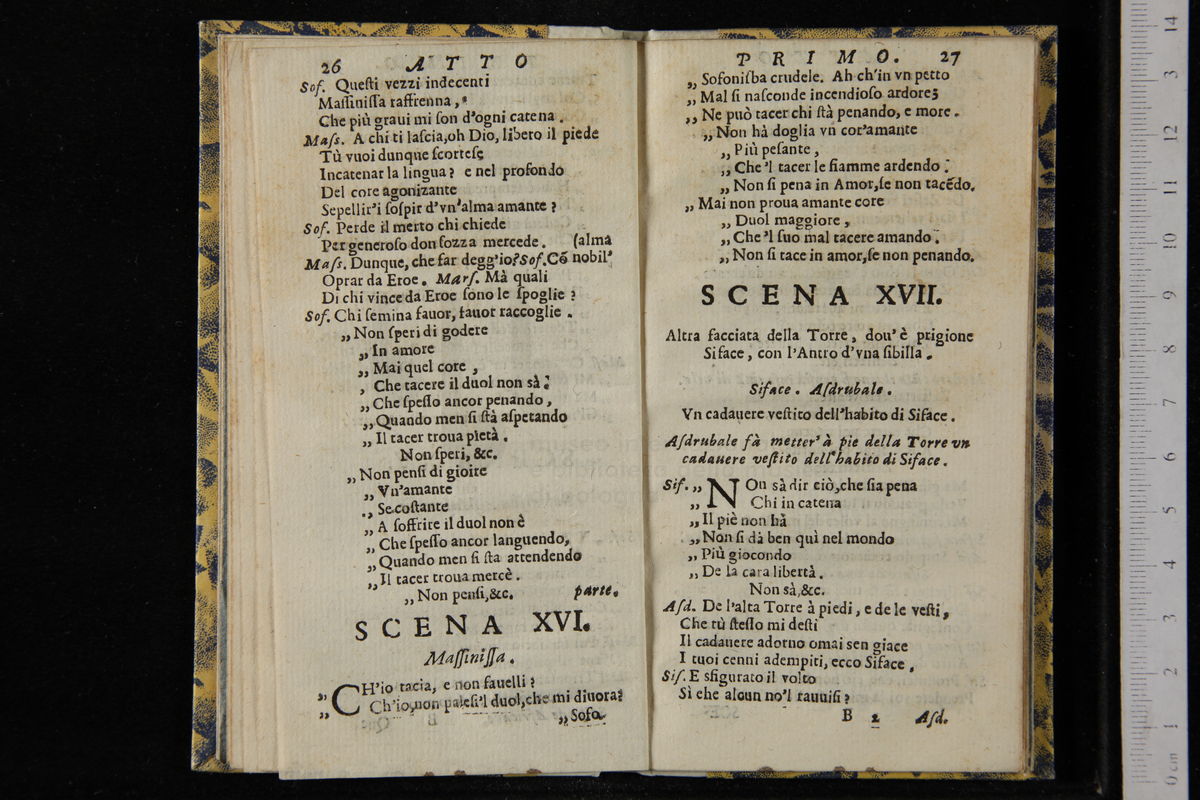 26 ATTO
Sof. Queſti vezzi indecenti
Maſſiniſſa raffrenna,
Che più graui mi ſon d'ogni catena.
Maſs. A chi ti laſcia, oh Dio, libero il piede
Tù vuoi dunque ſcorteſe
Incatenar la lingua? e nel profondo
Del core agonizante
Sepellir'i ſoſpir d'vn'alma amante?
Sof. Perde il merto chi chiede
Per generoſo don ſozza mercede. (alma
Maſs. Dunque, che far degg'io? Sof. Cõ nobil'
Oprar da Eroe. Marſ. Mà quali
Di chi vince da Eroe ſono le ſpoglie?
Sof. Chi ſemina fauor, fauor raccoglie.
„ Non ſperi di godere
„ In amore
„ Mai quel core,
, Che tacere il duol non sà:
„ Che ſpeſſo ancor penando,
„ Quando men ſi ſtà aſpetando
„ Il tacer troua pietà.
Non ſperi, &c.
„ Non penſi di gioire
„ Vn'amante
., Se coſtante
„ A ſoffrire il duol non è
„ Che ſpeſſo ancor languendo,
„ Quando men ſi ſta attendendo
„ Il tacer troua mercè.
„ Non penſi, &c. parte.
SCENA XVI.
Maſſiniſſa.
„ CH'io tacia, e non fauelli?
„ Ch'io, non paleſi'l duol, che mi diuora?
„ Sofo-
PRIMO. 27
„ Sofoniſba crudele. Ah ch'in vn petto
„ Mal ſi naſconde incendioſo ardore;
„ Ne può tacer chi ſtà penando, e more.
„ Non hà doglia vn cor'amante
„ Più peſante,
„ Che'l tacer le fiamme ardendo:
„ Non ſi pena in Amor, ſe non tacẽdo.
„ Mai non proua amante core
„ Duol maggiore,
„ Che'l ſuo mal tacere amando:
„ Non ſi tace in amor, ſe non penando.
SCENA XVII.
Altra facciata della Torre, dou'è prigione
Siface, con l'Antro d'vna ſibilla.
Siface. Aſdrubale.
Vn cadauere veſtito dell'habito di Siface.
Aſdrubale fà metter'à pie della Torre vn
cadauere veſtito dell'habito di Siface.
Sif. „ NOn sà dir ciò, che ſia pena
„ Chi in catena
„ Il piè non hà
„ Non ſi dà ben quì nel mondo
„ Più giocondo
„ De la cara libertà.
Non sà, &c.
Aſd. De l'alta Torre à piedi, e de le veſti,
Che tù ſteſſo mi deſti
Il cadauere adorno omai sen giace
I tuoi cenni adempiti, ecco Siface,
Sif. E sfigurato il volto
Sì che alcun no'l rauuiſi?
B 2 Aſd.